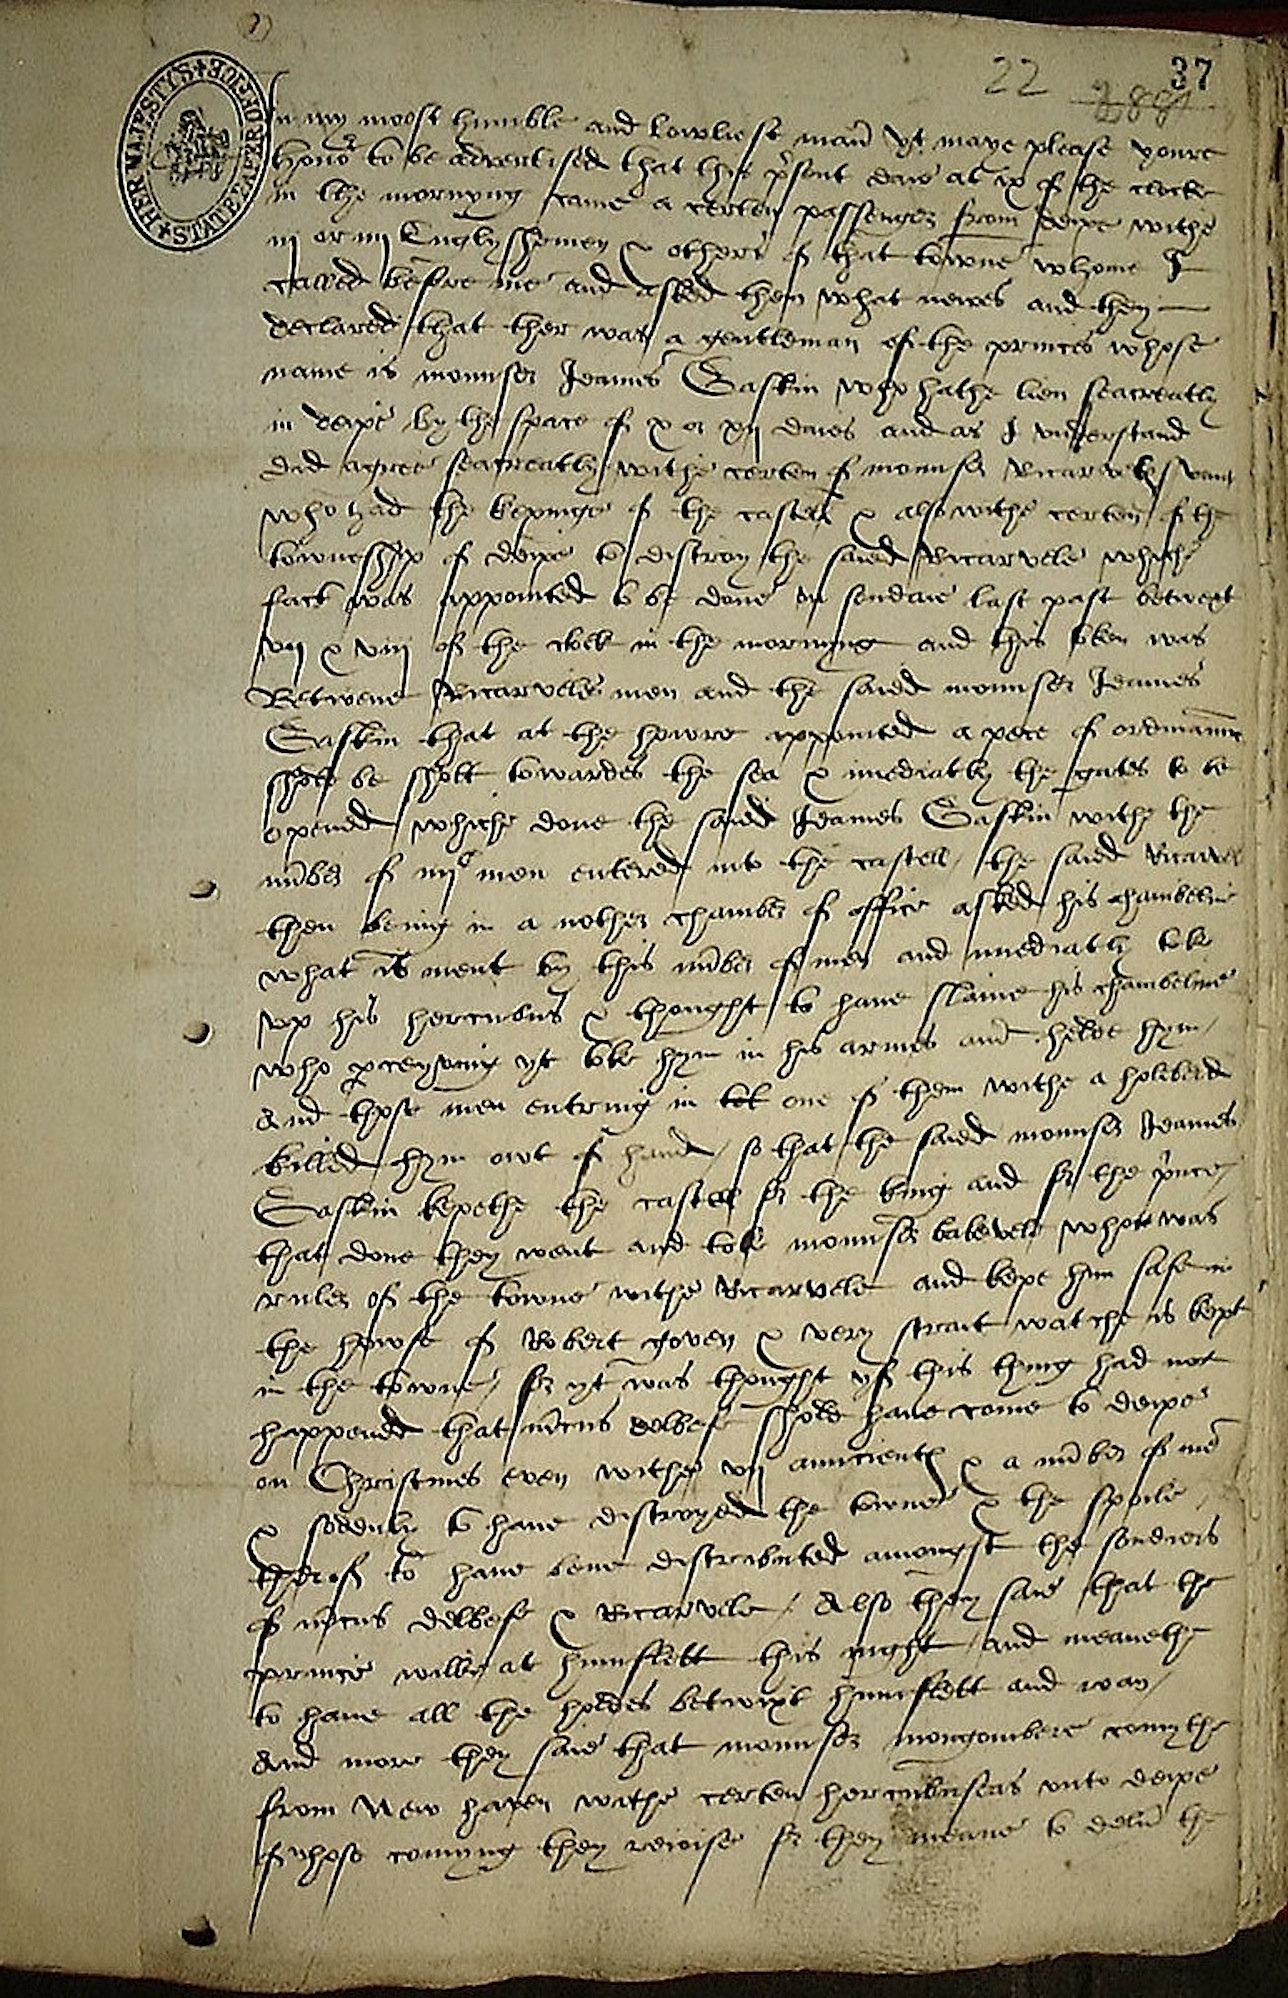 22 37
288
In my moost humble and lowliest man̄ yt maye please youre
honor to be advertised that this p̃sent daie at ix of the clocke
in the mornyng came a certen passenger from deipe withe
iij or iiij Englyshemen & others of that towne whome I
called before me and asked them what newes and they
declared that ther was a gentleman of the princes whose
name is mounser Jeames Gaskin who hathe lien seacreatly
in deipe by the space of x or xij daies and as I understand
did agree seacreatly withe certen of mounser Ricarvels
who had the kepinge of the castell & also withe certen of the
towneshyp of deipe to distroy the saied Ricarvele whiche
fact was appointed to be done on sondaie last past betwext
vij & viij of the clock in the mornyng and this token was
Betwene Ricarveles men and the saied mounser Jeames
Gaskin that at the howre appointed a pece of ordinaunce
shold be shott towardes the sea & imediatly the gates to be
opened whiche done the saied Jeames Gaskin withe the
nūber of iiijc men entered into the castell / the saied Ricarvel
then being in a nother chamber of office asked his chamberline
what is ment by this nūber of men and imediatly toke
vp his hercubus & thought to have slaine his chamberline
who p̱ceyving yt toke hym in his armes and helde hym /
And those men entring in one of them withe a holberd
killed hym owt of hand / so that the saied mounser Jeames
Gaskin kepethe the castell for the king and for the prince /
that done they went and toke mounser babevele who was
ruler of the towne withe Ricarvele and kepe him safe in
the howse of Robert goven & very strait watche is kept
in the towne / for yt was thought yf this thing had not
happened that m̃cus dolbefe shold have come to deipe
on Christmes even withe vij auncientes & a nūber of mē
& sodenly to have distroyed the towne & the spoile
therof to have bene distributed amongst the soudiers
of m̃cus delbefe & Ricarvele / Also they saie that the
prince wilbe at hunflett this night and meanethe
to have all the holdes betwixt hunflett and can /
And more they saie that mounser mongombere comythe
from New haven withe certen hercubuseas vnto deipe
of whose comyng they reioise for they meane to delū the